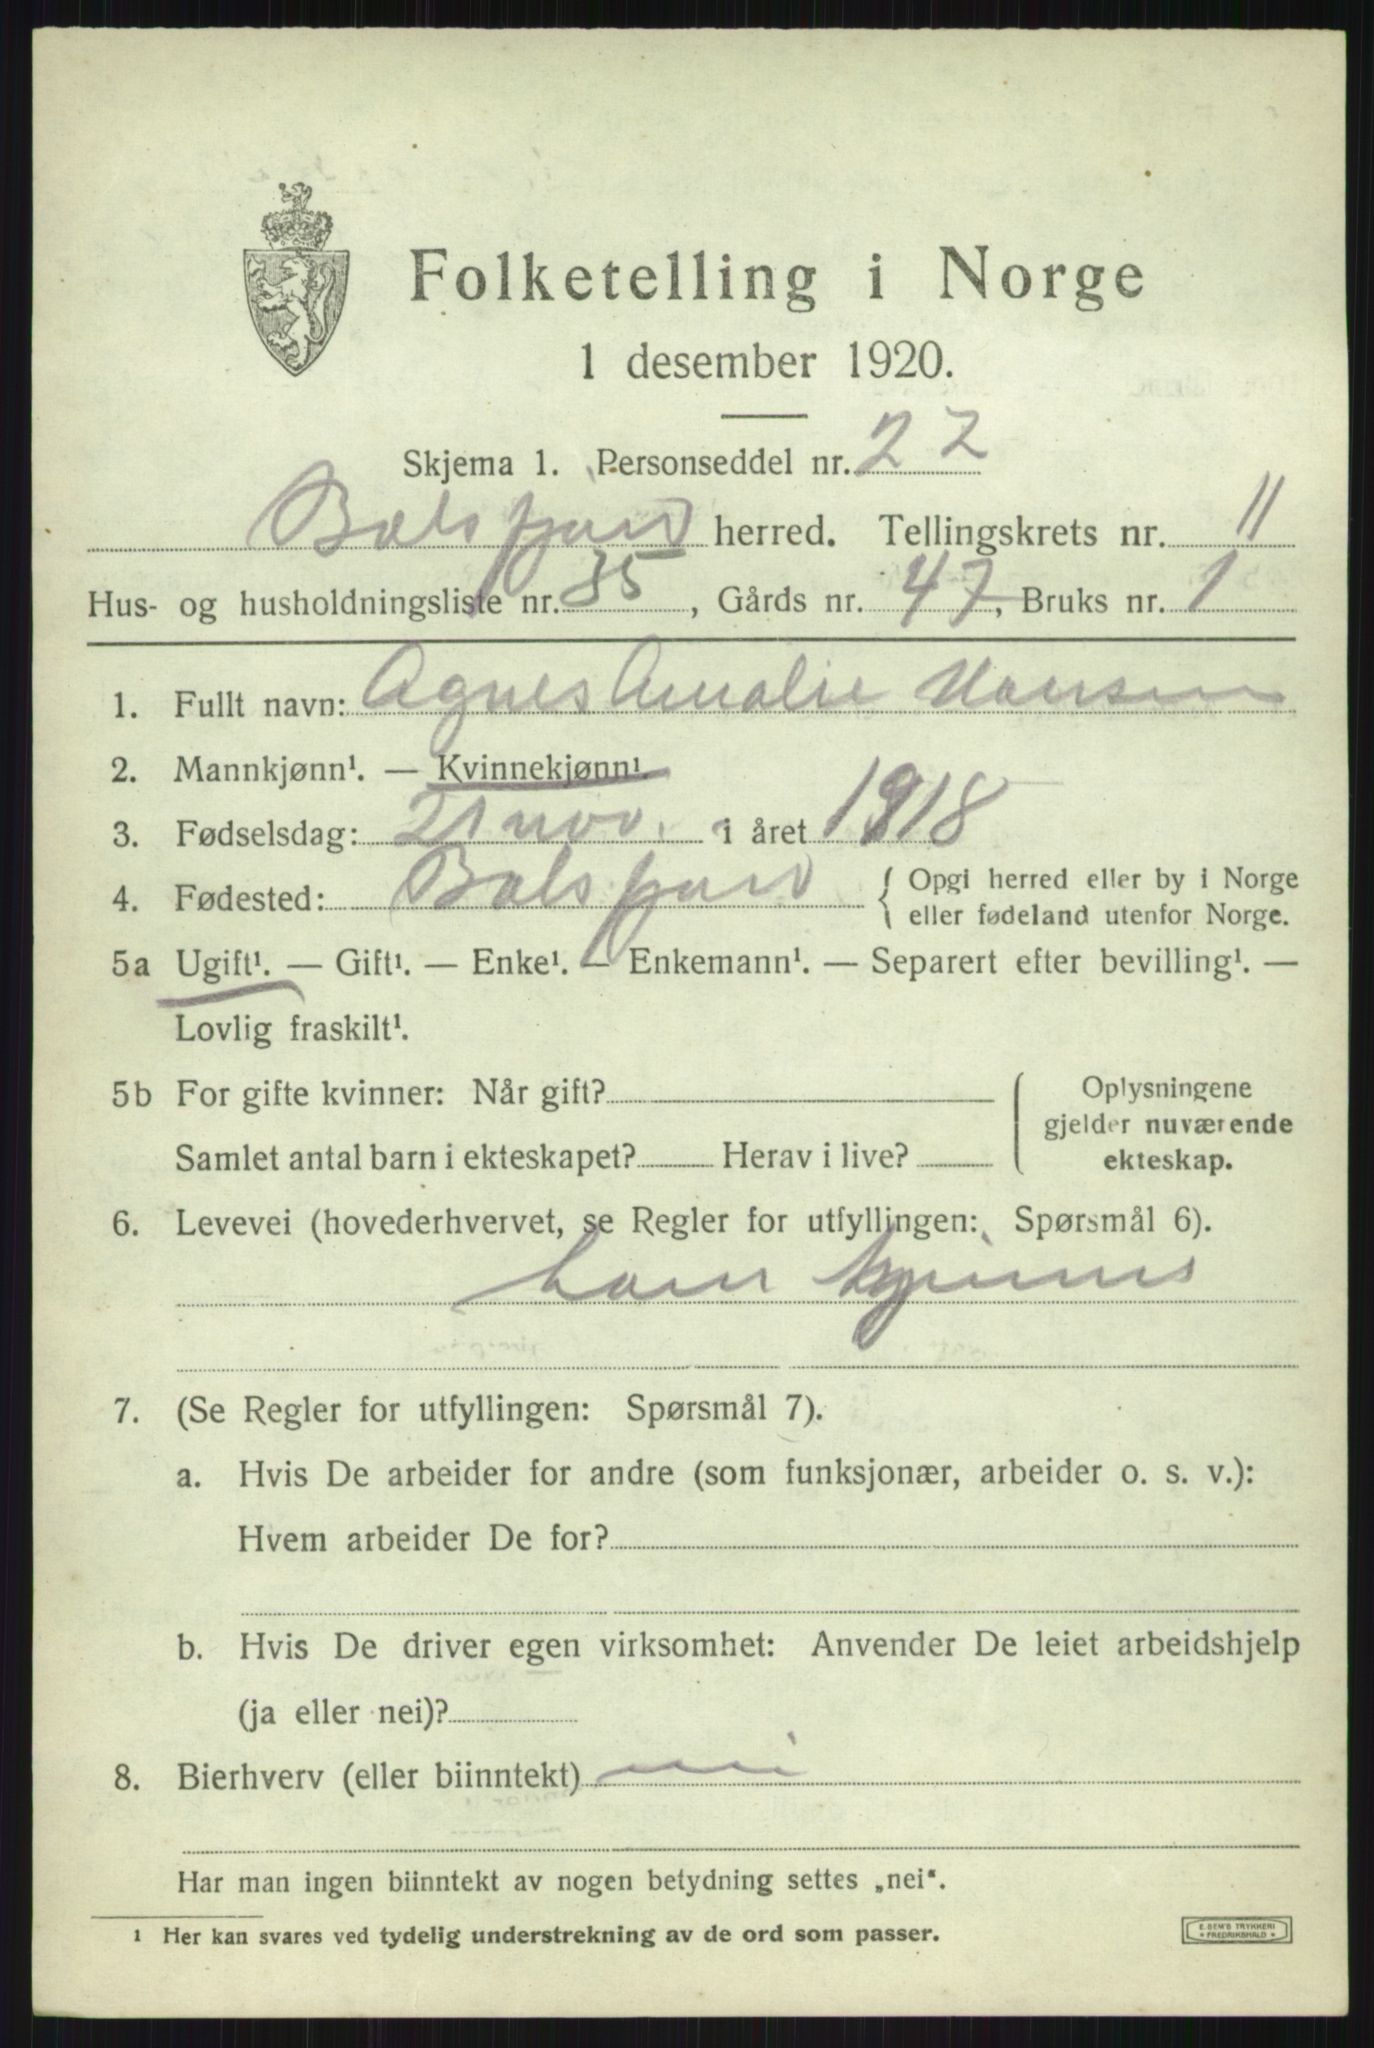 Folketelling i Norge
1 desember 1920.
Skjema 1. Personseddel nr. 22
Balsfjord herred. Tellingskrets nr. 11
Hus- og husholdningsliste nr. 35, Gårds nr. 47, Bruks nr. 1
1. Fullt navn: Agnes Amalie Hansen
2. Mannkjønn¹. — Kvinnekjønn¹.
3. Fødselsdag: 21 nov. i året 1918
4. Fødested: Balsfjord { Opgi herred eller by i Norge
eller fødeland utenfor Norge.
5a Ugift¹. — Gift¹. — Enke¹. — Enkemann¹. — Separert efter bevilling¹. —
Lovlig fraskilt¹.
5b For gifte kvinner: Når gift? ( Oplysningene
gjelder nuværende
Samlet antal barn i ekteskapet? Herav i live? ekteskap.
6. Levevei (hovederhvervet, se Regler for utfyllingen: Spørsmål 6).
7. (Se Regler for utfyllingen: Spørsmål 7).
a. Hvis De arbeider for andre (som funksjonær, arbeider o. s. v.):
Hvem arbeider De for?
b. Hvis De driver egen virksomhet: Anvender De leiet arbeidshjelp
(ja eller nei)?
8. Bierhverv (eller biinntekt) nei
Har man ingen biinntekt av nogen betydning settes „nei“.
¹ Her kan svares ved tydelig understrekning av de ord som passer.
E. SEM'S TRYKKERI
* FREDRIKSHALD *